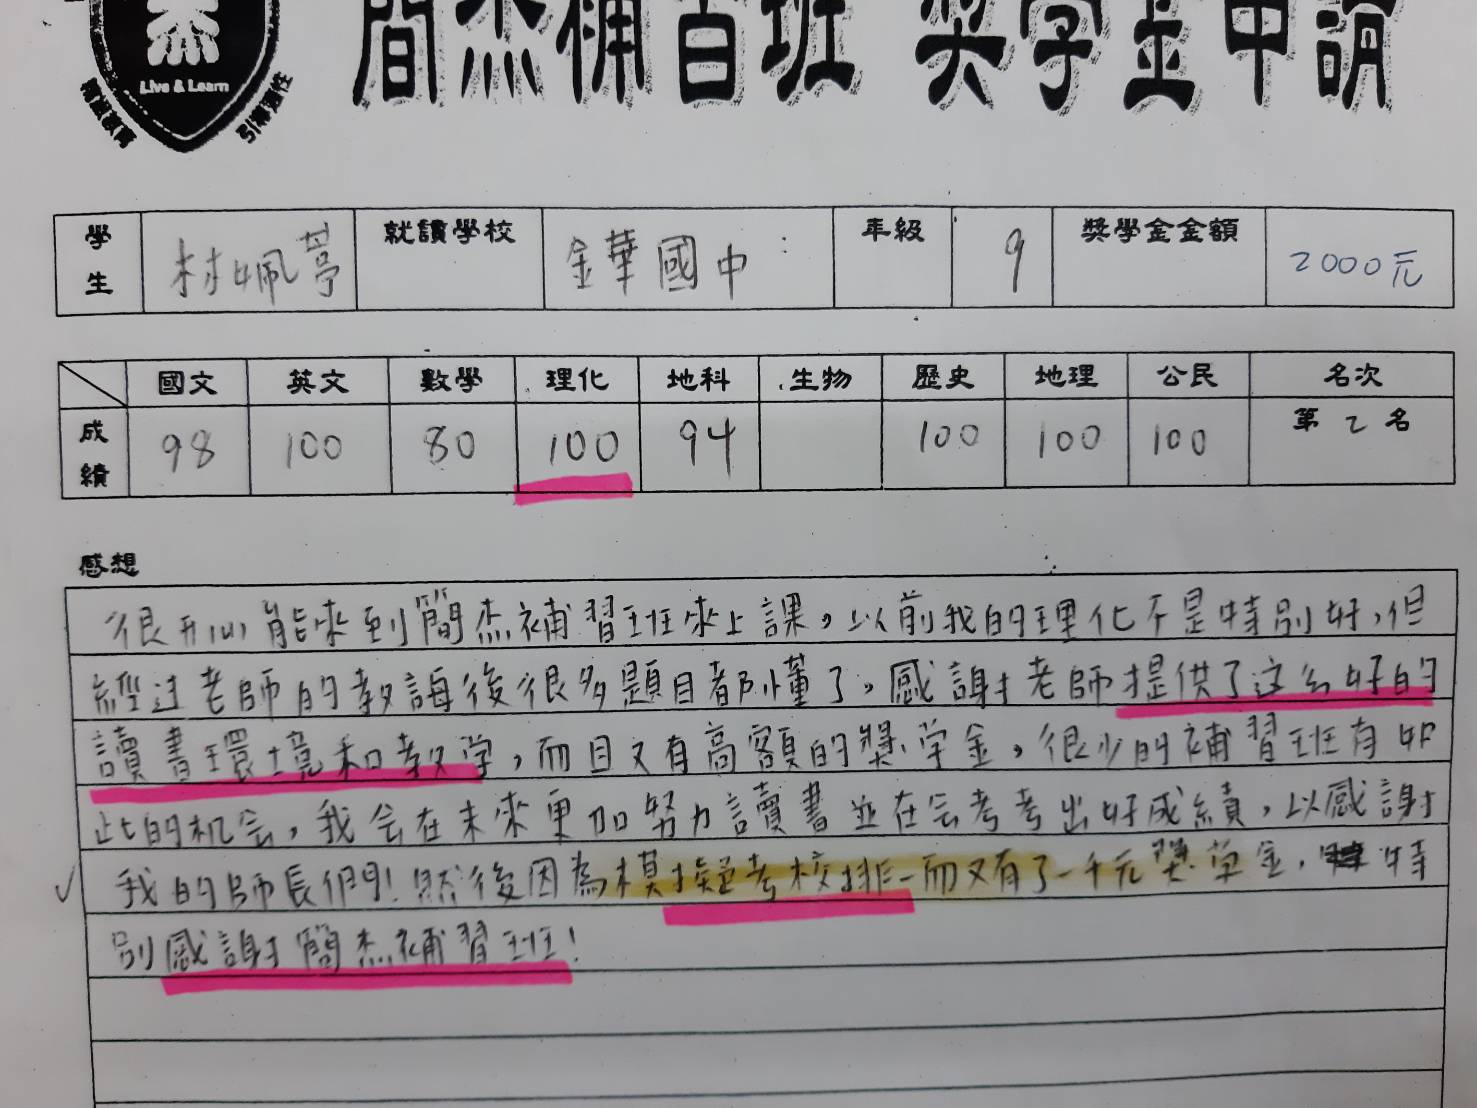 Live & Learn
簡杰補習班 獎學金申請
學生 林珮葶 就讀學校 金華國中 年級 9 獎學金金額 2000元
國文 英文 數學 理化 地科 生物 歷史 地理 公民 名次
成績 98 100 80 100 94 100 100 100 第 2 名
感想
很開心能來到簡杰補習班來上課,以前我的理化不是特別好,但
經过老師的教誨後很多題目都懂了。感謝老師提供了这么好的
讀書環境和教学,而且又有高額的獎学金,很少的補習班有如
此的机会,我会在未來更加努力讀書並在会考考出好成績,以感謝
我的師長們!然後因為模擬考校排一而又有了一千元獎學金,特
別感謝簡杰補習班!